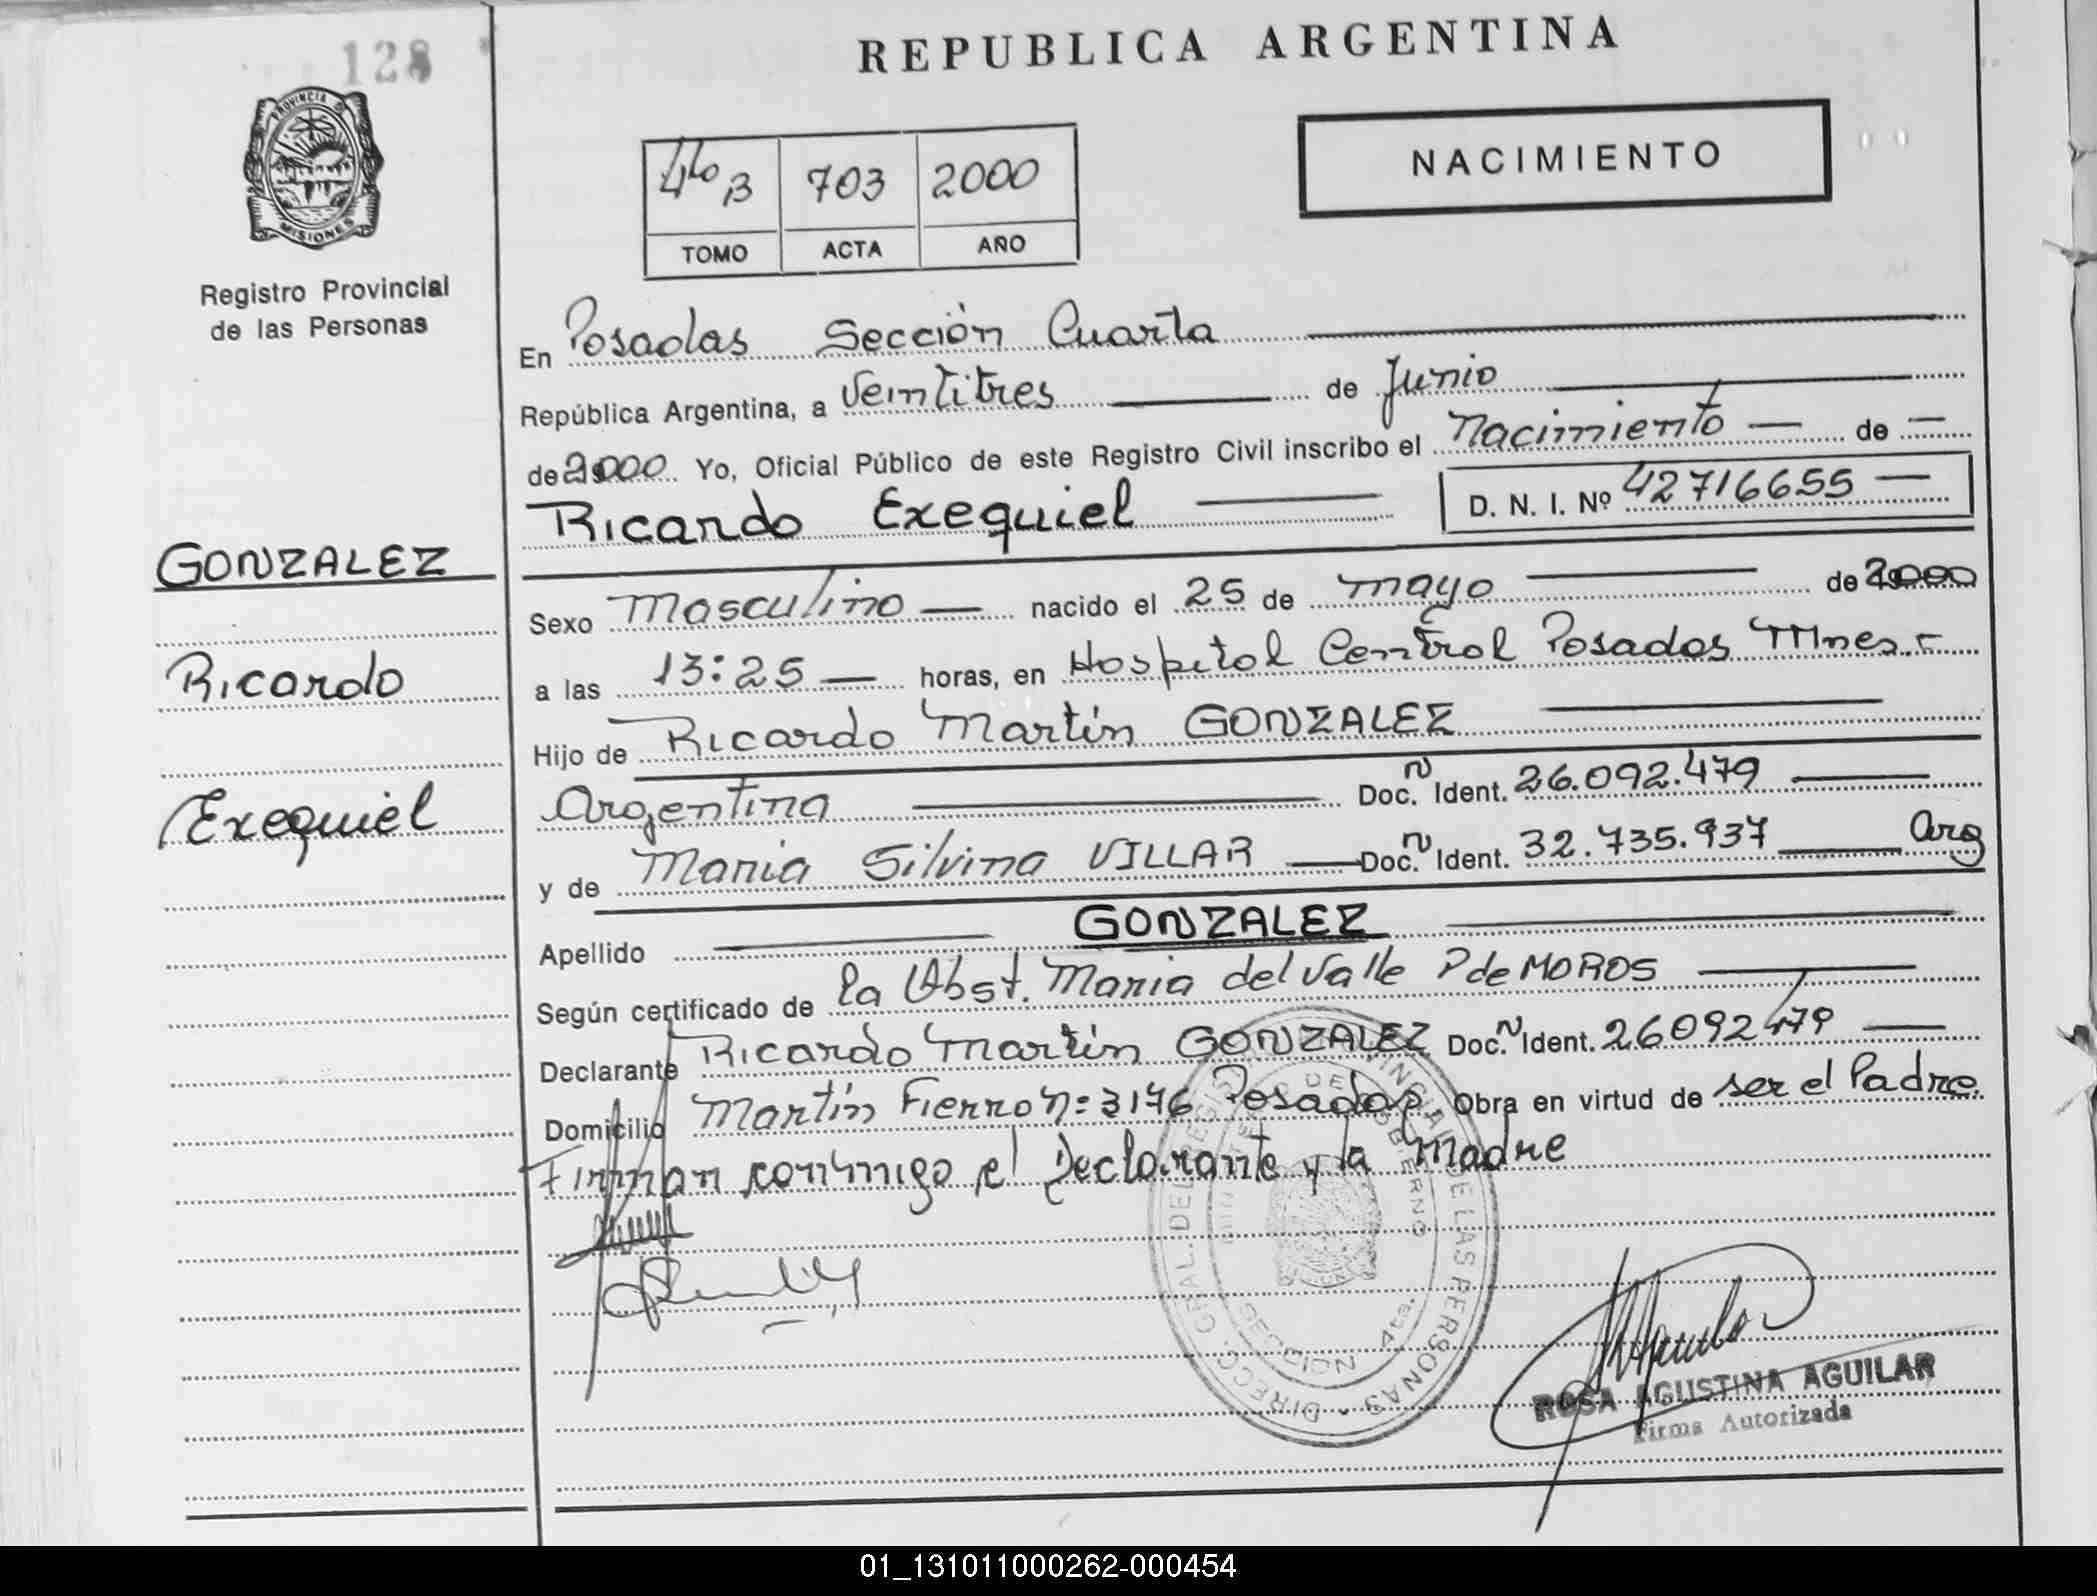 128
REPUBLICA ARGENTINA
PROVINCIA DE
MISIONES
NACIMIENTO
4to B 703 2000
TOMO ACTA AÑO
Registro Provincial
de las Personas
En Posadas Sección Cuarta
República Argentina, a Veintitres de Junio
de 2000 Yo, Oficial Público de este Registro Civil inscribo el Nacimiento de
Ricardo Exequiel D. N. I. Nº 42716655
GONZALEZ
Sexo Masculino nacido el 25 de mayo de 2000
Ricardo
a las 13:25 horas, en Hospital Central Posadas Mnes.
Hijo de Ricardo Martín GONZALEZ
Exequiel
Argentina Doc. N Ident. 26.092.479
y de Maria Silvina VILLAR Doc. N Ident. 32.735.937 Arg
Apellido GONZALEZ
Según certificado de la Obst. Maria del Valle P de MOROS
Declarante Ricardo Martín GONZALEZ Doc. N Ident. 26092479
Domicilio Martín Fierro Nº 3176 Posadas Obra en virtud de ser el Padre.
Firman conmigo el Declarante y la Madre
DIRECC. GRAL. DEL REGISTRO PROVINCIAL DE LAS PERSONAS
MINISTERIO DE GOBIERNO
SECCION 4ta.
ROSA AGUSTINA AGUILAR
Firma Autorizada
01_131011000262-000454